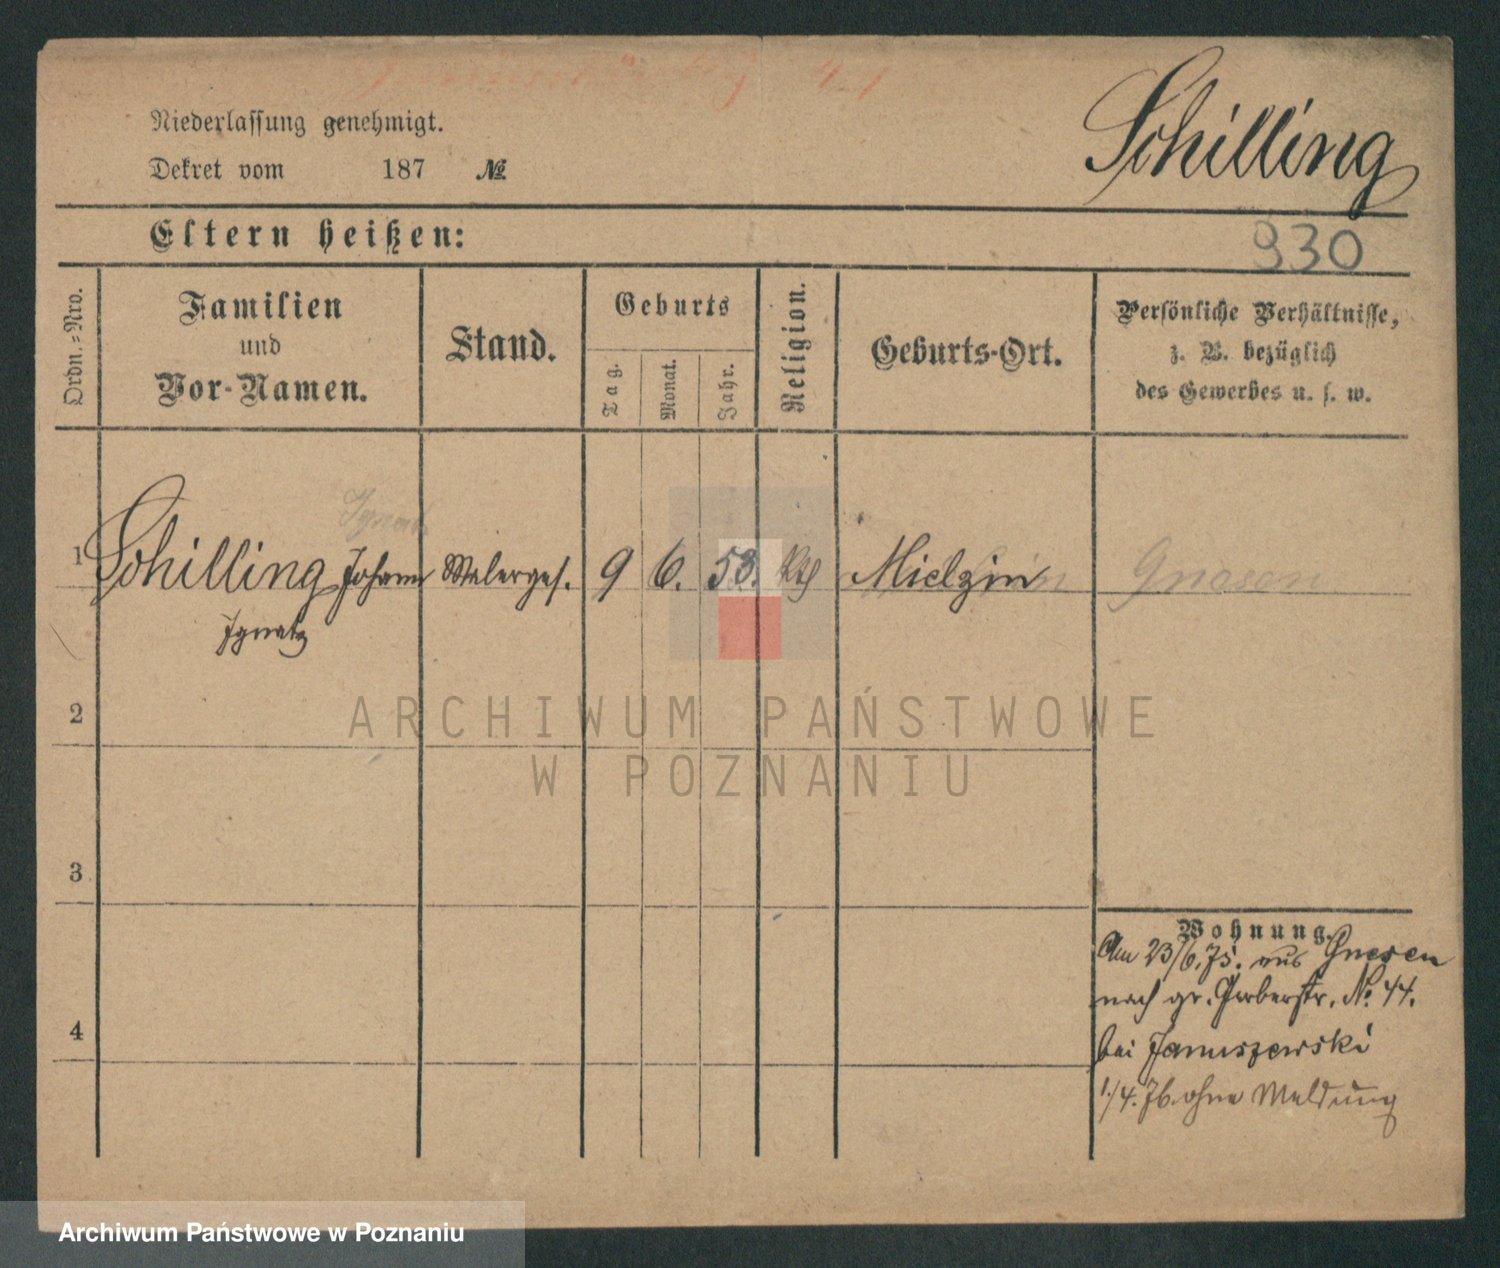 Schilling
Niederlassung genehmigt.
Dekret vom 187 №
Eltern heißen:
930
Ordn.-Nro.
Familien
und
Vor-Namen.
Stand.
Geburts
Tag.
Monat.
Jahr.
Religion.
Geburts-Ort.
Persönliche Verhältnisse,
z. B. bezüglich
des Gewerbes u. s. w.
Ignatz
1 Schilling Johann Malerges. 9 6. 58. kth Mielzin Gnesen
Ignatz
2
ARCHIWUM PAŃSTWOWE
W POZNANIU
3
Wohnung.
Am 23/6.75. aus Gnesen
nach gr. Gerberstr. No. 44.
4
bei Januszewski
1./4.76. ohne Meldung
Archiwum Państwowe w Poznaniu